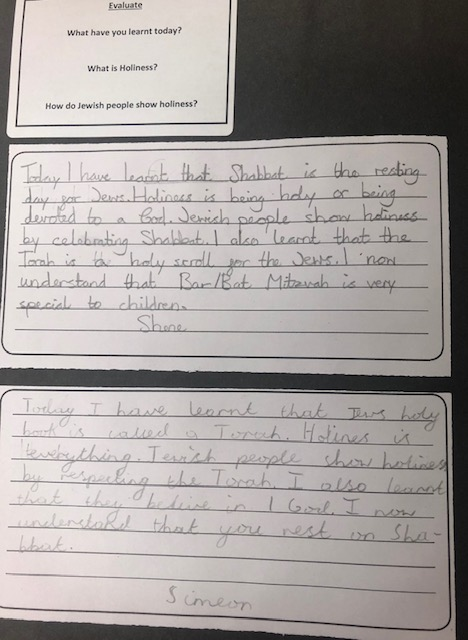 Evaluate
What have you learnt today?
What is Holiness?
How do Jewish people show holiness?
Today I have learnt that Shabbat is the resting
day for Jews. Holiness is being holy or being
devoted to a God. Jewish people show holiness
by celebrating Shabbat. I also learnt that the
Torah is a holy scroll for the Jews. I now
understand that Bar/Bat Mitzvah is very
special to children.
Shone
Today I have learnt that Jews holy
book is called a Torah. Holines is
everything. Jewish people show holiness
by respecting the Torah. I also learnt
that they bedive in 1 God. I now
understand that you rest on Sha-
bbat.
Simeon